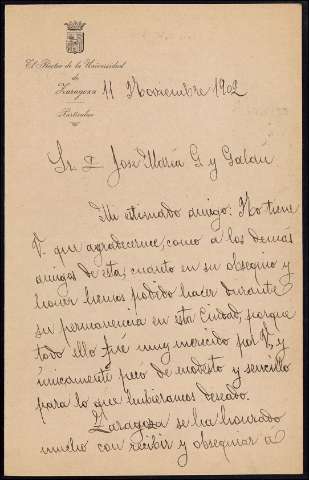 El Rector de la Universidad
de
Zaragoza
Particular
11 Noviembre 1902
Sr. D. Jose María G. y Galán
Mi estimado amigo: No tiene
V. que agradecerme, como a los demás
amigos de esta, cuanto en su obsequio y
honor hemos podido hacer durante
su permanencia en esta Ciudad, porque
todo ello fué muy merecido por V. y
únicamente pecó de modesto y sencillo
para lo que hubieramos deseado.
Zaragoza se ha honrado
mucho con recibir y obsequiar a